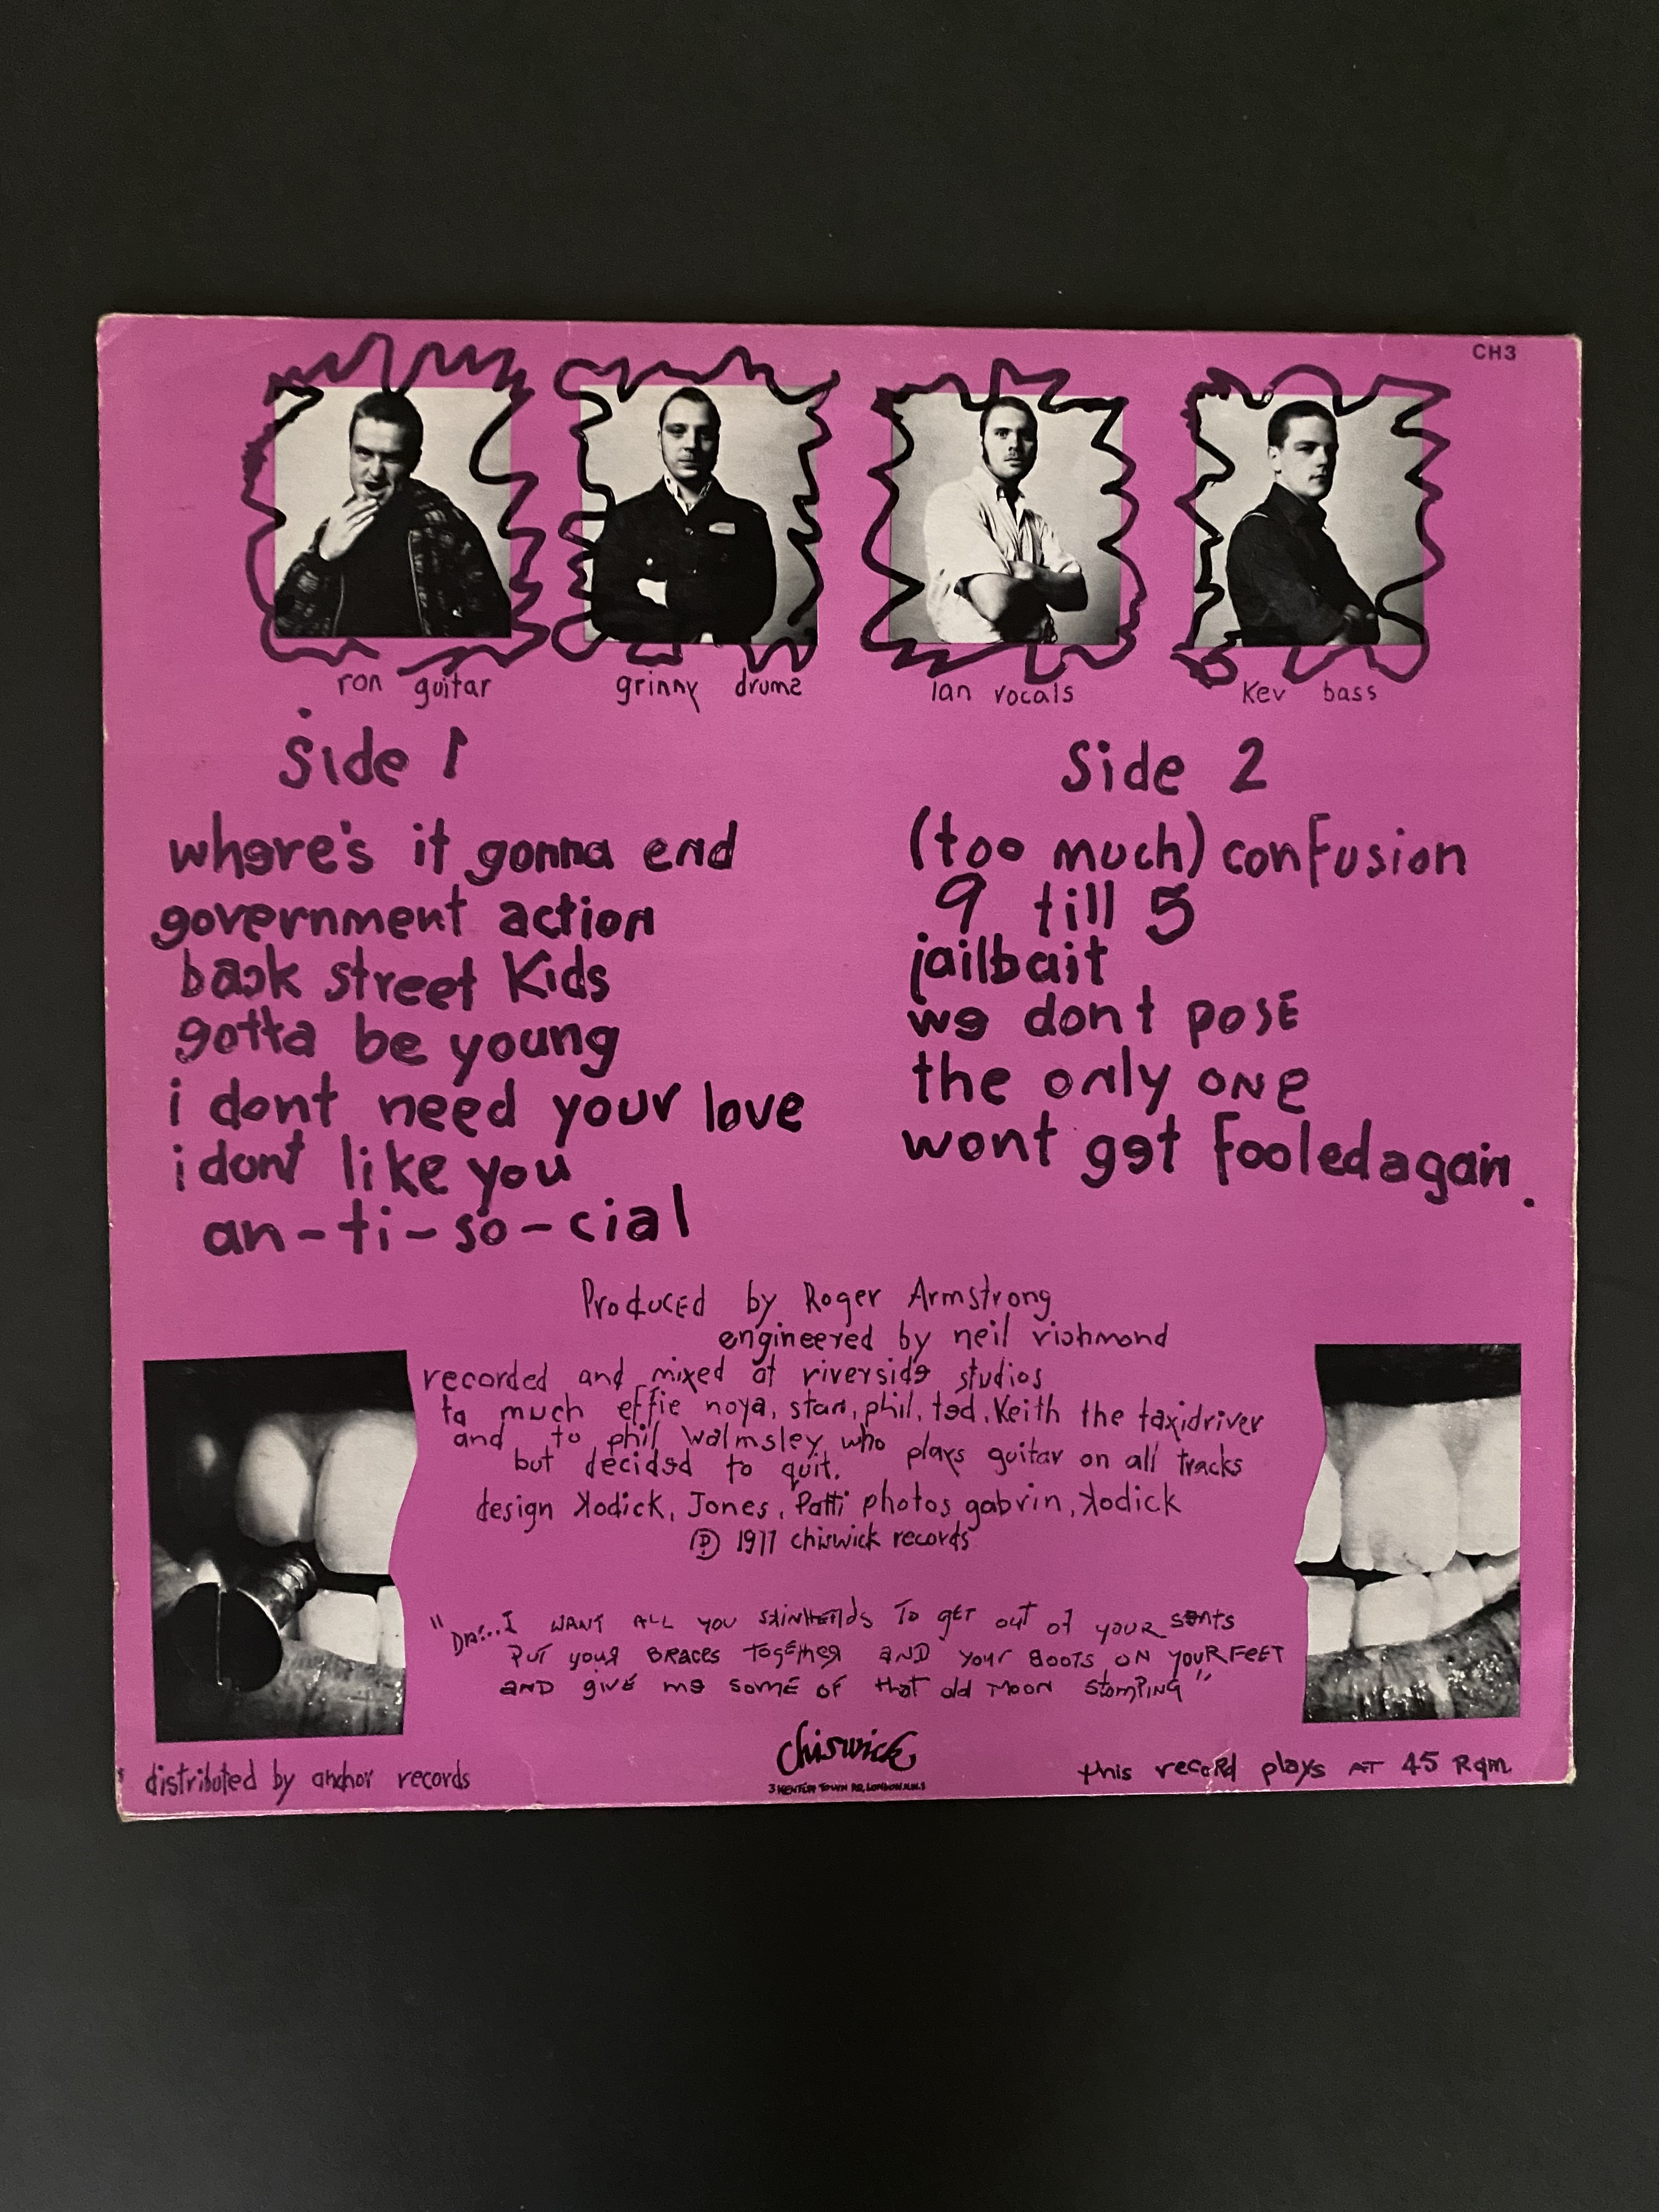 CH3
ron guitar
grinny drums
Ian vocals
Kev bass
Side 1
where's it gonna end
government action
back street Kids
gotta be young
i dont need your love
i dont like you
an-ti-so-cial
Side 2
(too much) confusion
9 till 5
jailbait
we dont posE
the only oNe
wont get fooled again.
ProducEd by Roger Armstrong
engineered by neil richmond
recorded and mixed at riverside studios
ta much effie noya, stan, phil, ted, Keith the taxidriver
and to phil walmsley who plays guitar on all tracks
but decided to quit.
design Kodick, Jones, Patti photos gabrin, Kodick
Ⓟ 1977 chiswick records
"DA!...I WANT ALL YOU SKINHEAds To gET out of YOUR sEats
PuT youR BRACES TogETHeR aND your BOOTS ON YOUR FEET
aND givE me somE oF that old MOON StomPING"
chiswick
3 KENTISH TOWN RD, LONDON N.W.1
distributed by anchor records
this recoRd plays AT 45 Rpm